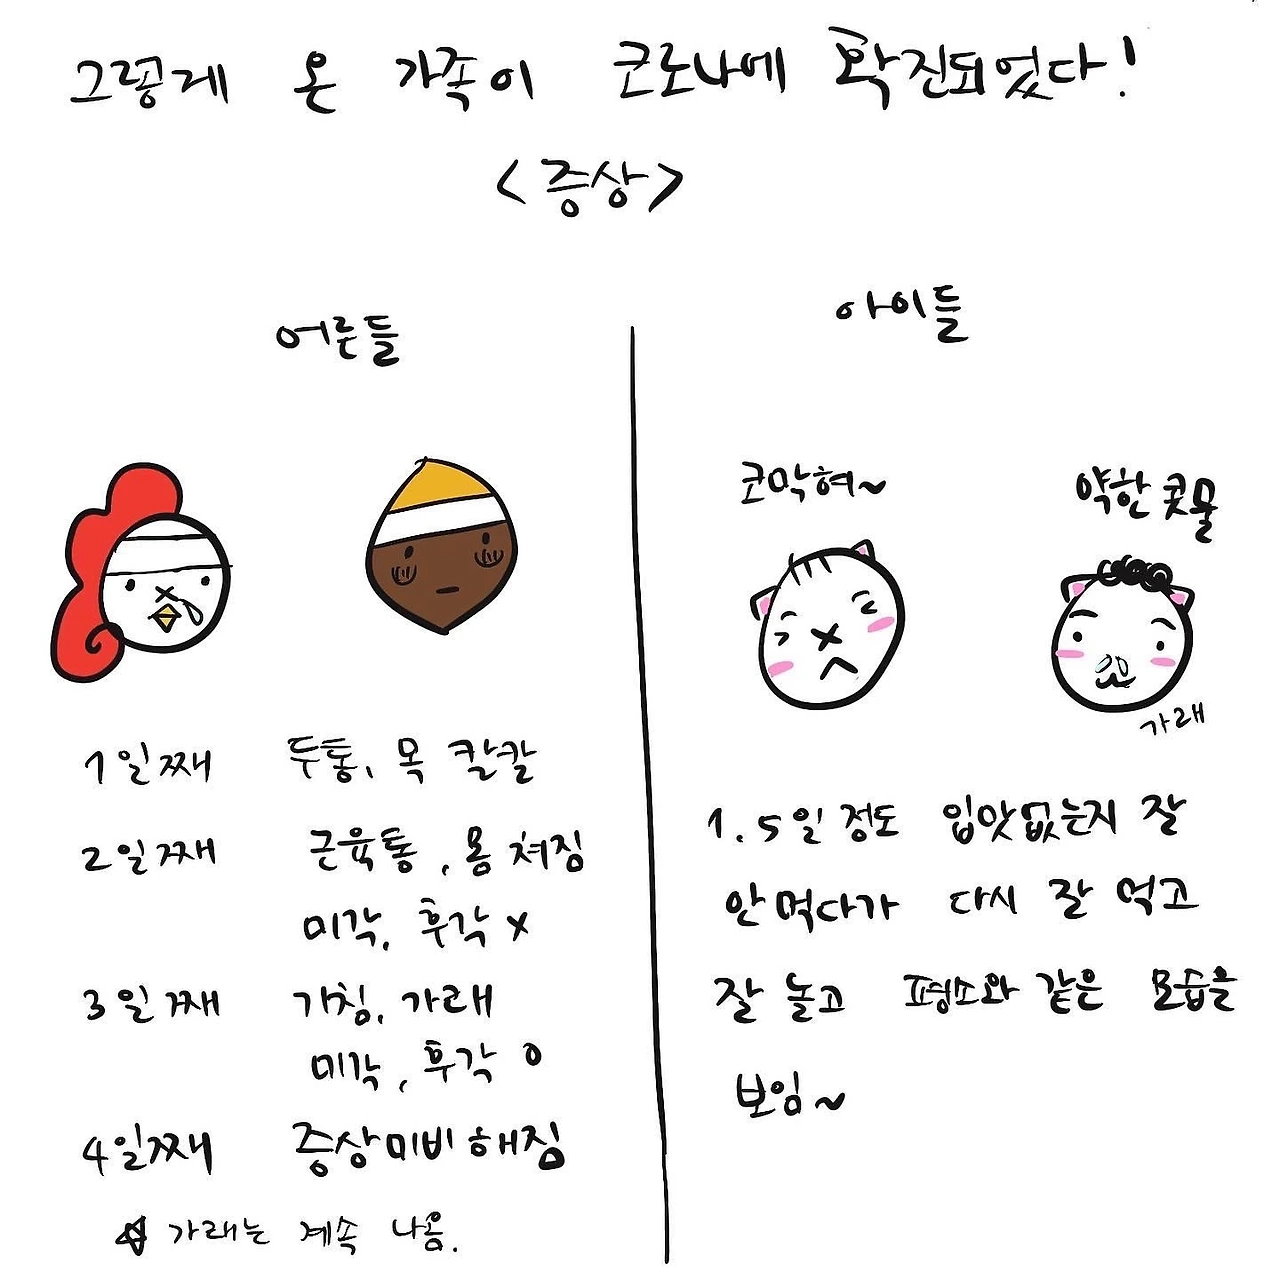 그렇게 온 가족이 코로나에 확진되었다!
<증상>
어른들
1일째 두통, 목 칼칼
2일째 근육통, 몸 쳐짐
미각, 후각 x
3일째 기침, 가래
미각, 후각 o
4일째 증상미비해짐
☆ 가래는 계속 나옴.
아이들
코막혀~
약한 콧물
가래
1.5일 정도 입맛없는지 잘
안먹다가 다시 잘 먹고
잘 놀고 평소와 같은 모습을
보임~